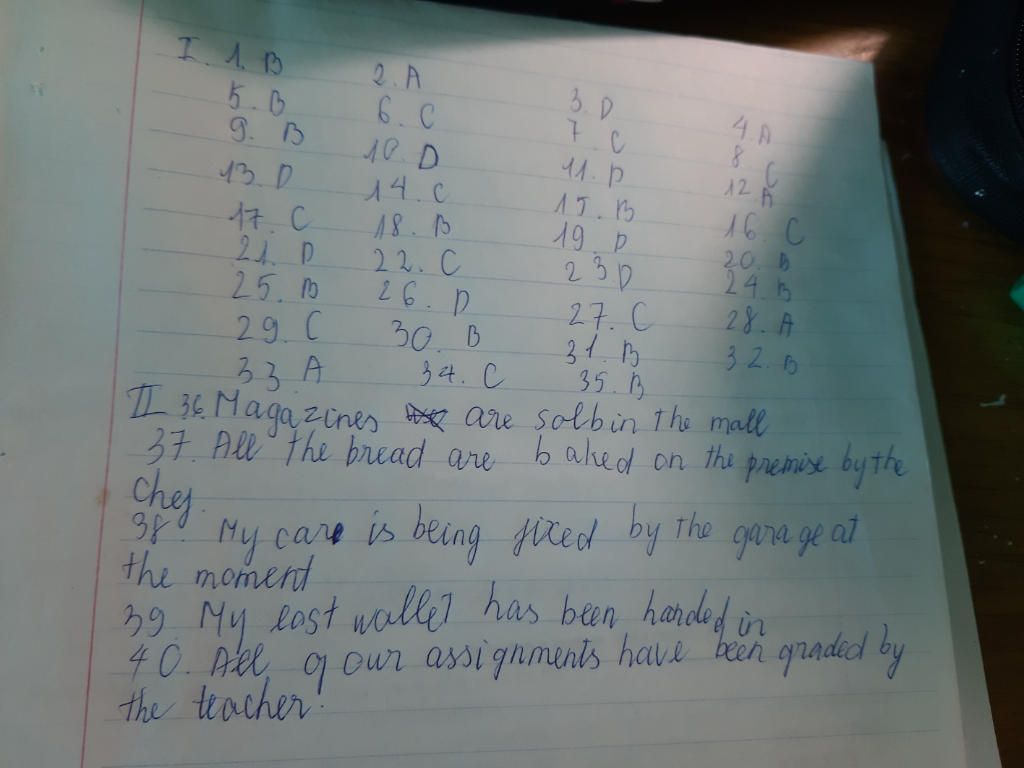 I. 1. B 2. A 3. D 4. A
5. B 6. C 7. C 8. C
9. B 10. D 11. D 12. A
13. D 14. C 15. B 16. C
17. C 18. B 19. D 20. B
21. D 22. C 23 D 24. B
25. B 26. D 27. C 28. A
29. C 30. B 31. B 32. B
33 A 34. C 35. B
II 36. Magazines are solb in the mall
37. All the bread are baked on the premise by the
chef.
38. My care is being fixed by the garage at
the moment
39 My lost wallet has been handed in
40. All of our assignments have been graded by
the teacher.